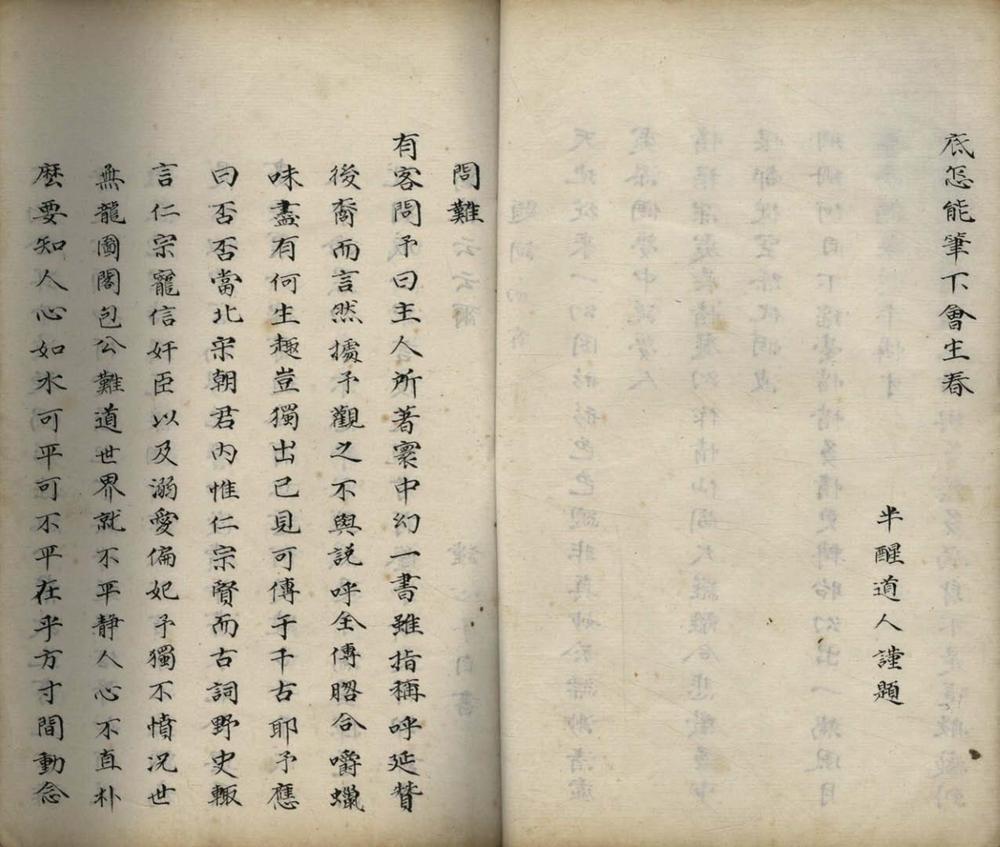 底怎能筆下會生春
半醒道人謹題
問難
有客問予曰主人所著寰中幻一書雖指稱呼延贊
後裔而言然據予觀之不與説呼全傳吻合嚼蠟
味盡有何生趣豈獨出已見可傳于千古耶予應
曰否否當北宋朝君內惟仁宗賢而古詞野史輙
言仁宗寵信奸臣以及溺愛偏妃予獨不憤况世
無龍圖閣包公難道世界就不平靜人心不直朴
麽要知人心如水可平可不平在乎方寸間動念